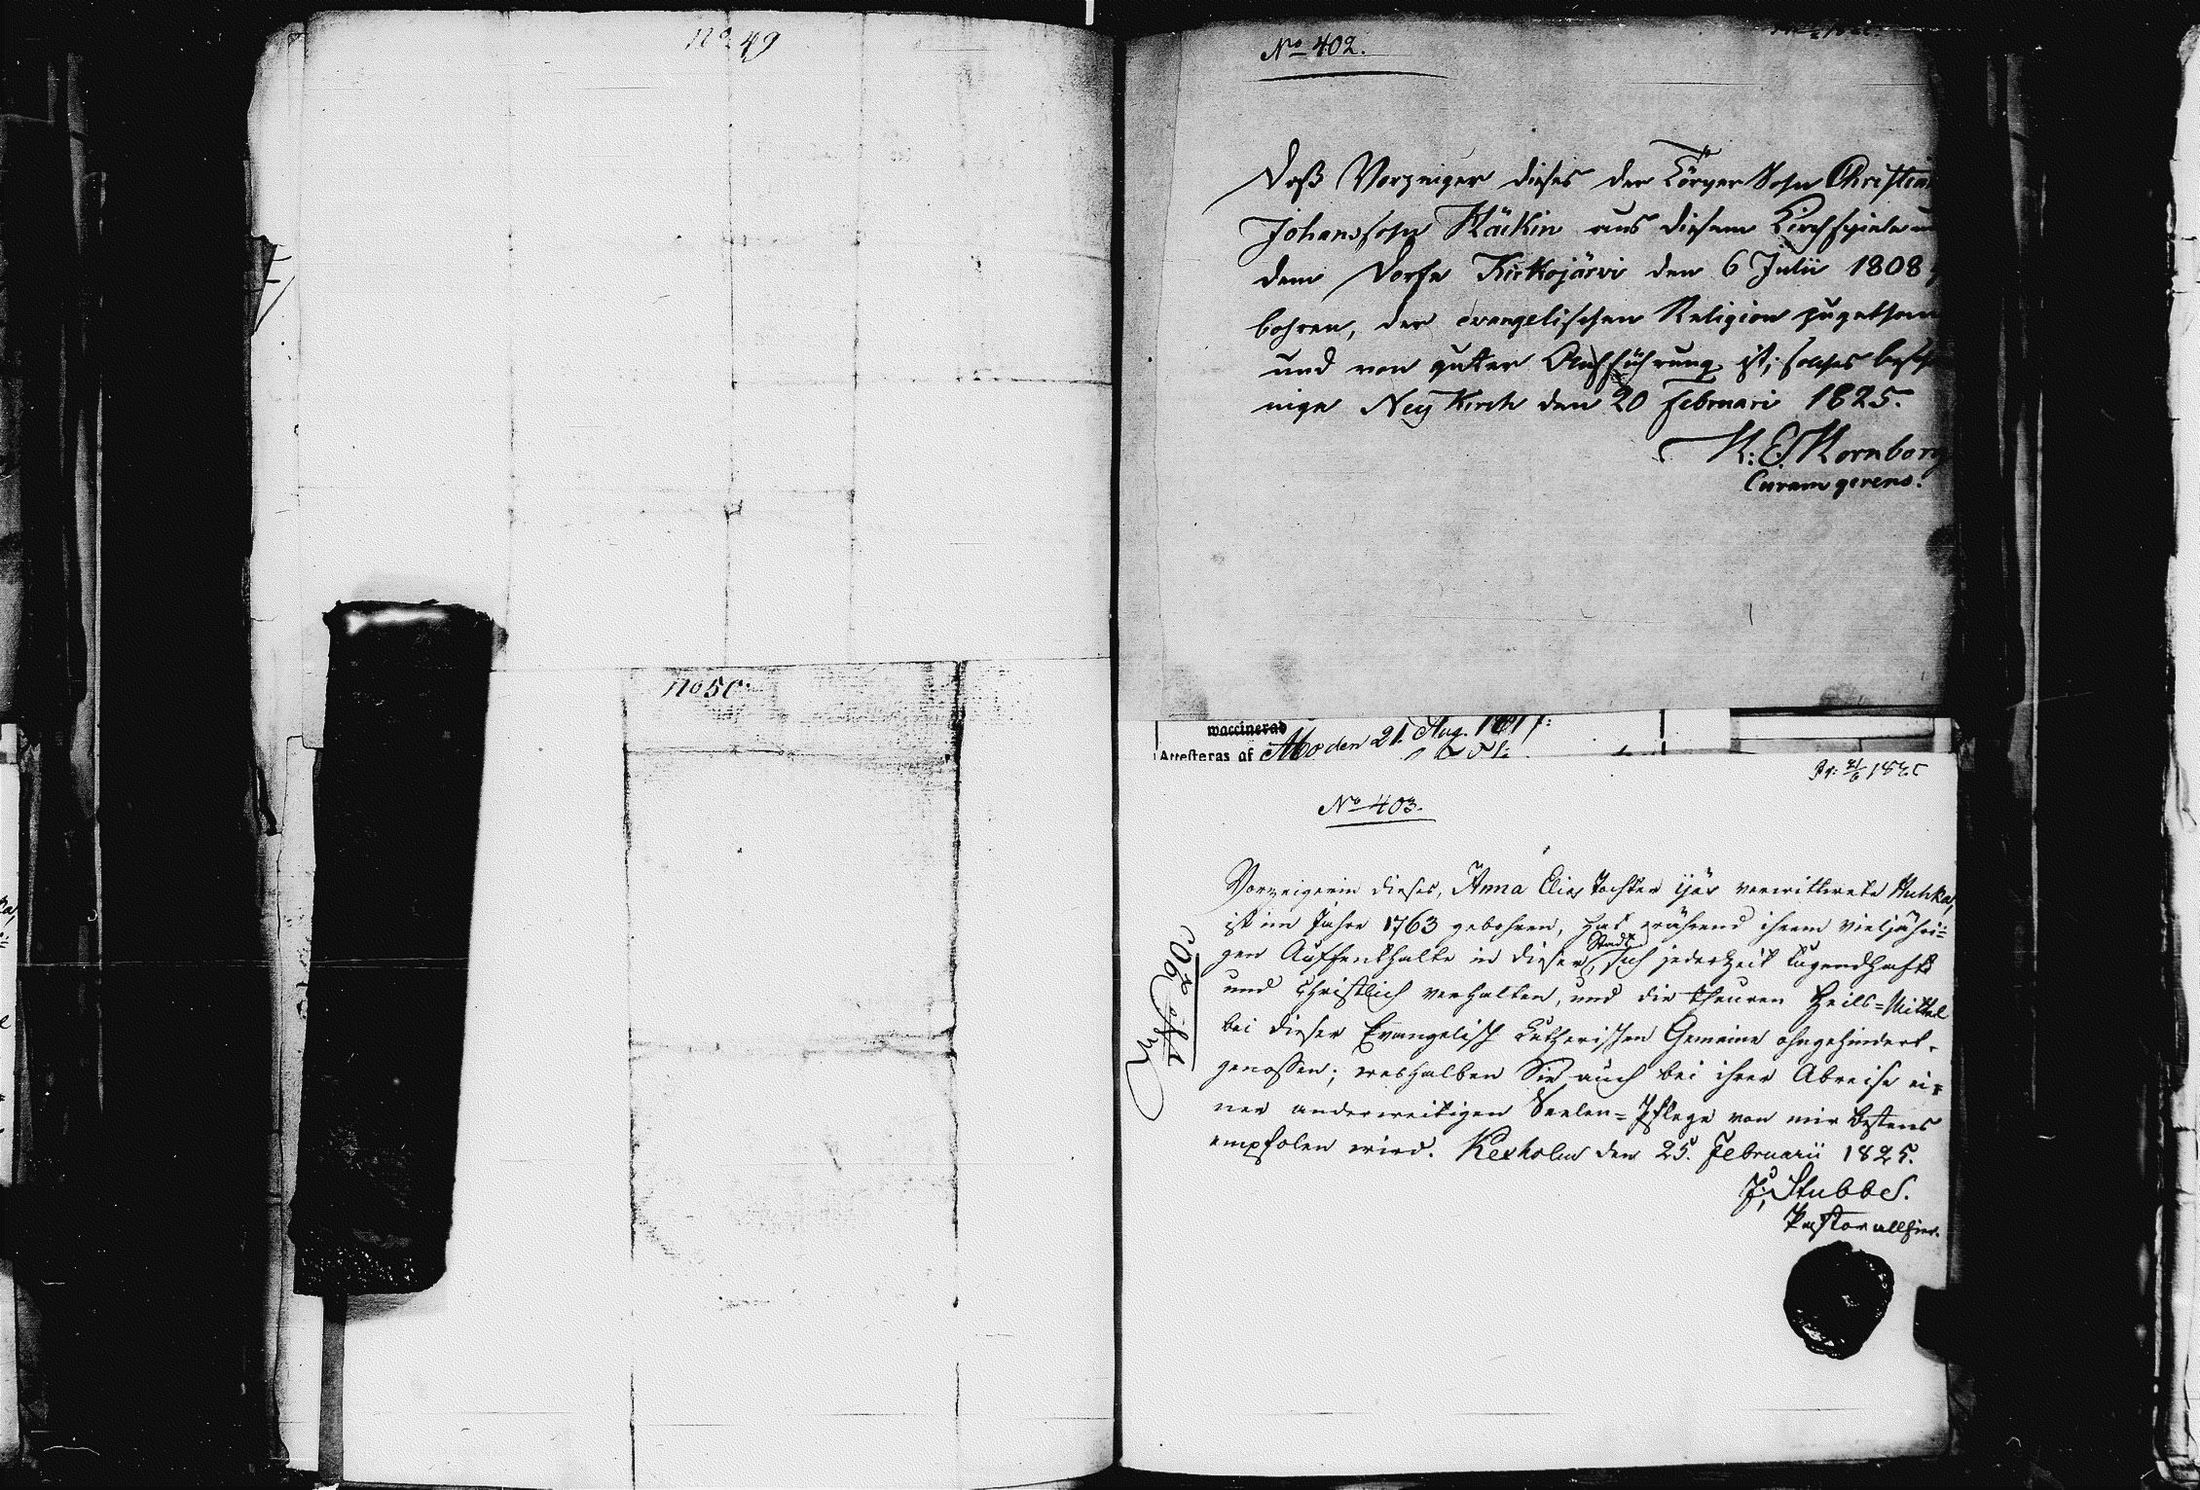 No 49
No 50
No 402.
Daß Vorzeiger dieses der Törper Sohn Christian
Johansohn Räikin aus diesem Kirchspiele u
dem Dorfe Kirkojärvi den 6 Julii 1808 g
bohren, der evangelischen Religion zugethan
und von gutter Aufführung ist, solches besche
nige Ney Kirch den 20 Februari 1825.
Curam gerens.
waccinerad
Attesteras af Åbo den 21. Aug.
No 403.
Vorzeigerin dieses, Anna Elias Tochter verwittwete Huhka,
ist im Jahre 1763 gebohren, hat während ihrem vieljähri=
gen Auffenthalte in dieser Stadt, sich jederzeit tugendhaft
und christlich verhalten, und die theuren Heils=Mittel
bei dieser Evangelisch Lutherischen Gemeine ohngehindert
genossen; weshalben Sie auch bei ihrer Abreise ei=
ner anderweitigen Seelen=Pflege von mir bestens
empfolen wird. Kexholm den 25. Februarii 1825.
J. Stubbe.
Pastor allhier.